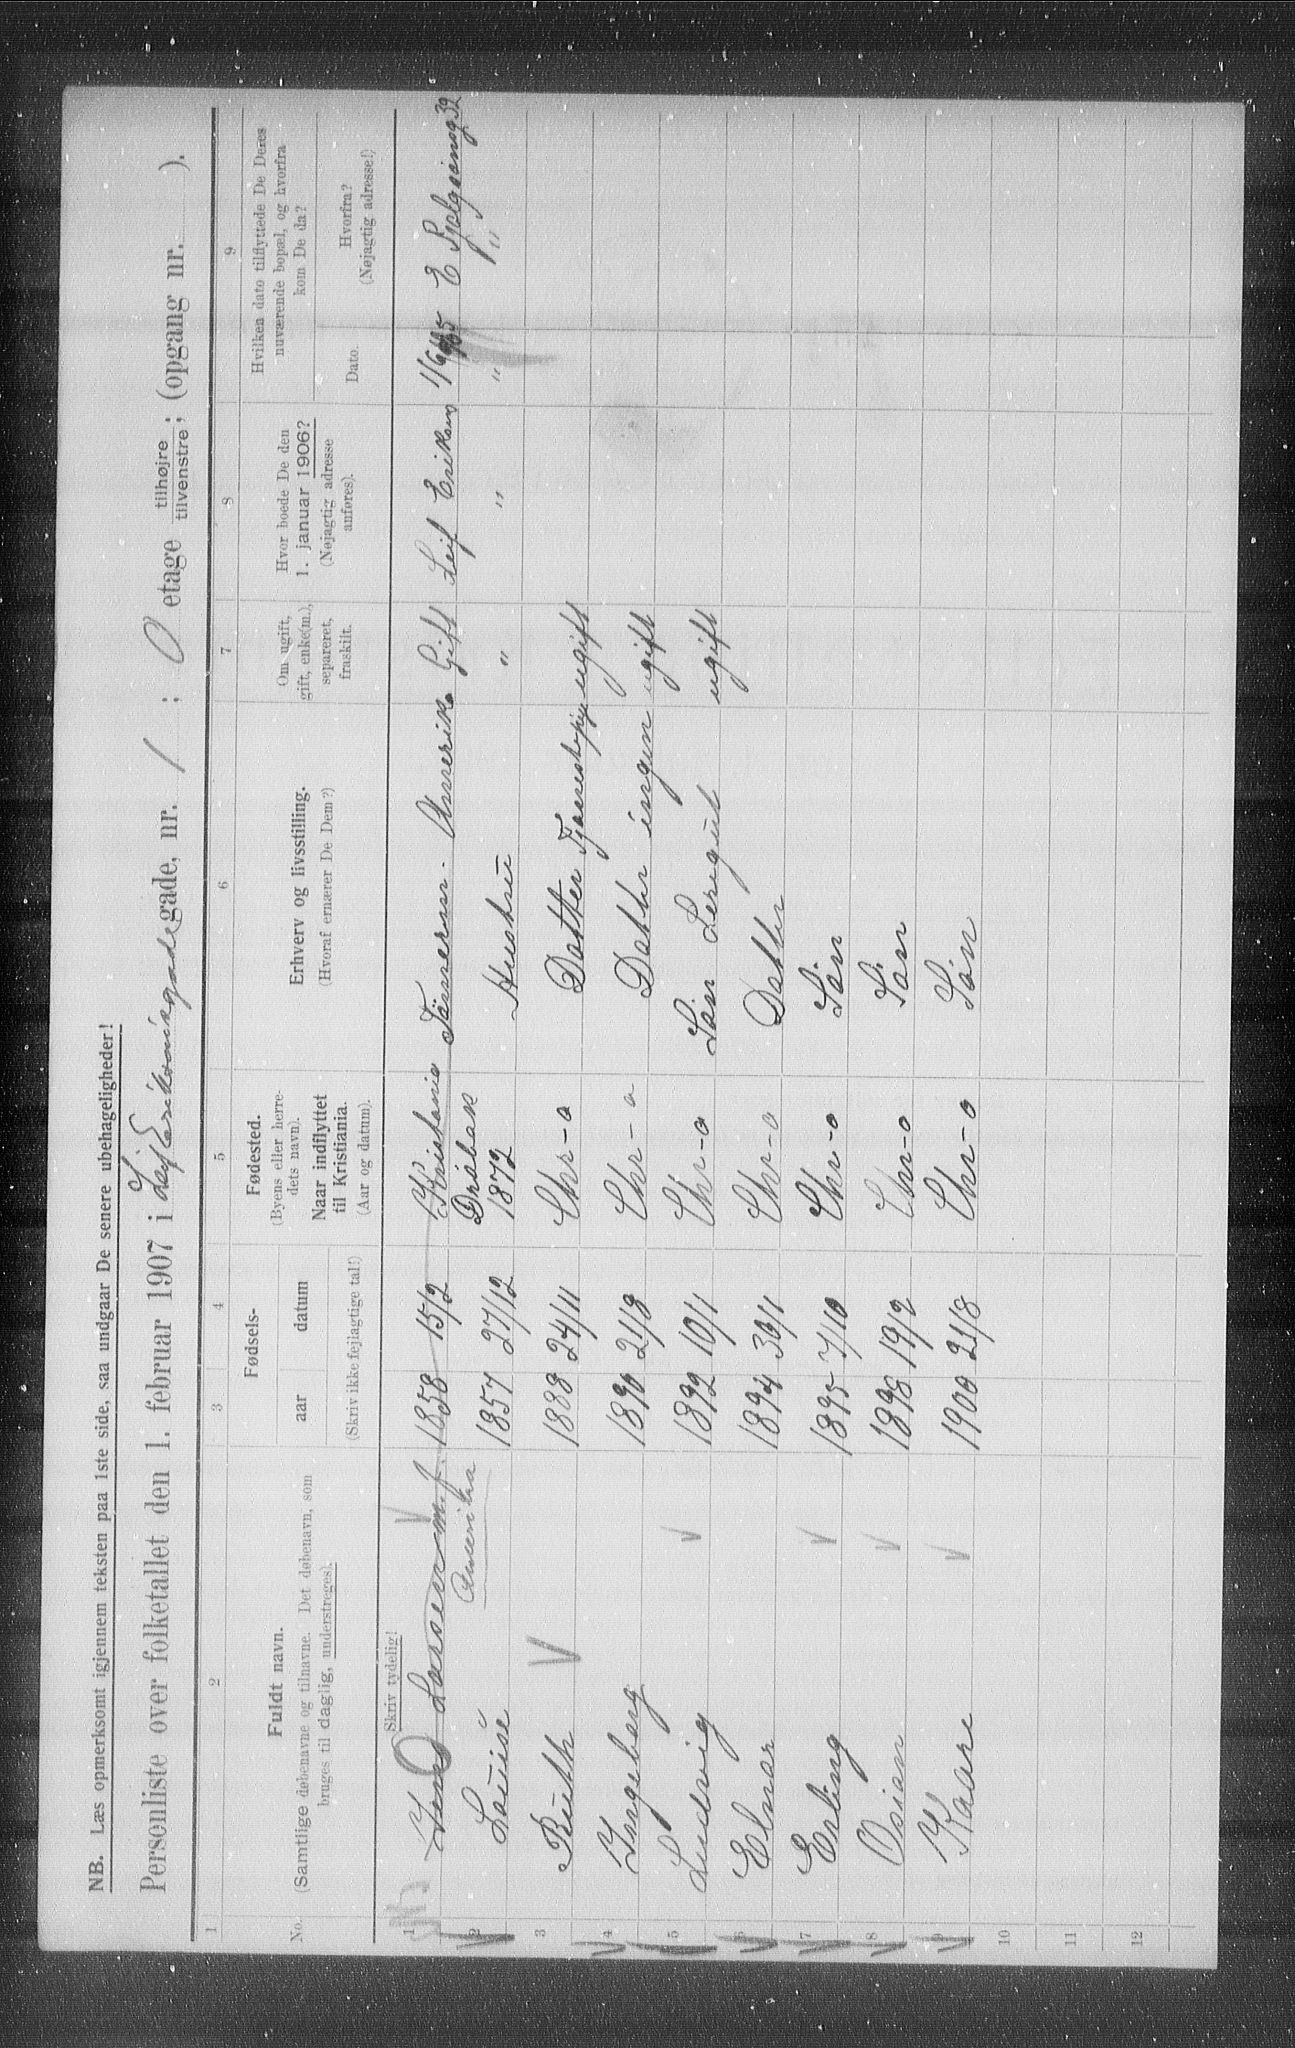 NB. Læs opmerksomt igjennem teksten paa 1ste side, saa undgaar De senere ubehageligheder!
Personliste over folketallet den 1. februar 1907 i Leif Eriksøns gade, nr. 1 : O etage tilhøjre tilvenstre; (opgang nr. ).
1 2 3 4 5 6 7 8 9
No.
Fuldt navn.
(Samtlige døbenavne og tilnavne. Det døbenavn, som
bruges til daglig, understreges).
Fødsels-
aar datum
(Skriv ikke fejlagtige tal!)
Fødested.
(Byens eller herre-
dets navn).
Naar indflyttet
til Kristiania.
(Aar og datum).
Erhverv og livsstilling.
(Hvoraf ernærer De Dem?)
Om ugift,
gift, enke(m.),
separeret,
fraskilt.
Hvor boede De den
1. januar 1906?
(Nøjagtig adresse
anføres).
Hvilken dato tilflyttede De Deres
nuværende bopæl, og hvorfra
kom De da?
Dato.
Hvorfra?
(Nøjagtig adresse!)
Skriv tydelig!
1 Larsen m. f. 1858 15/2 Kristania Tömerm. Amerika Gift Leif Erikson 1/6 05 E 32
Amerika
2 Louise 1857 27/12 Dröbak 1872 Hustru " " " "
3 Ruth 1888 24/11 Chr-a Datter ugift
4 Ingeborg 1890 21/8 Chr-a Datter ingen ugift
5 Ludvig 1892 10/1 Chr-a Sön ugift
6 Elnar 1894 30/1 Chr-a Datter
7 Erling 1895 7/10 Chr-a Sön
8 Osian 1898 19/2 Chr-a Sön
9 Kaare 1900 21/8 Chr-a Sön
10
11
12